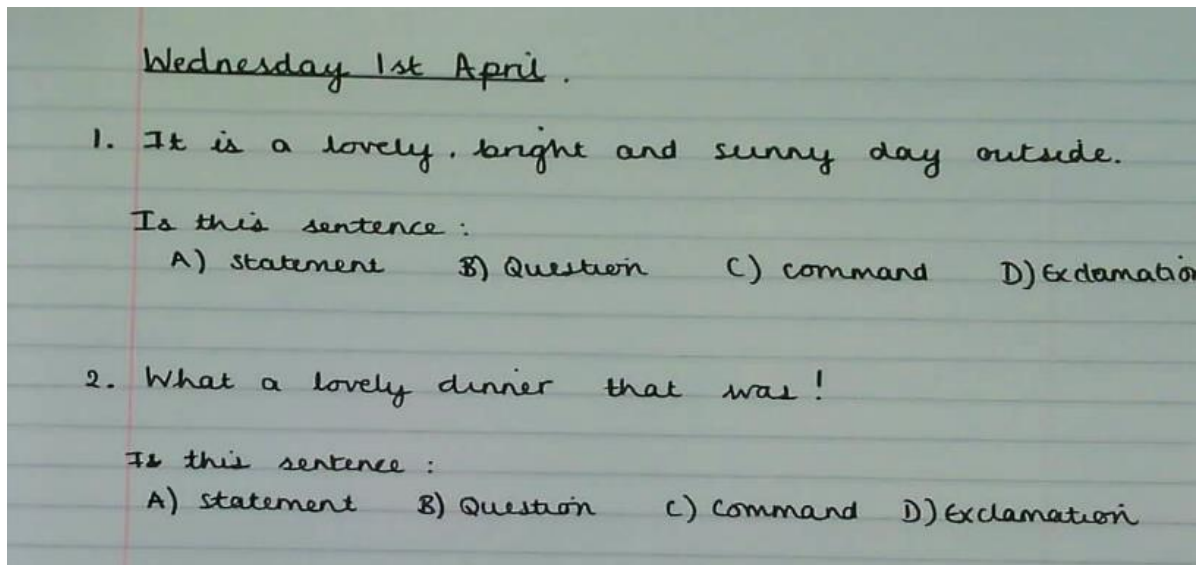 Wednesday 1st April.
1. It is a lovely, bright and sunny day outside.
Is this sentence:
A) statement B) Question C) command D) Exclamation
2. What a lovely dinner that was!
Is this sentence:
A) statement B) Question C) command D) Exclamation